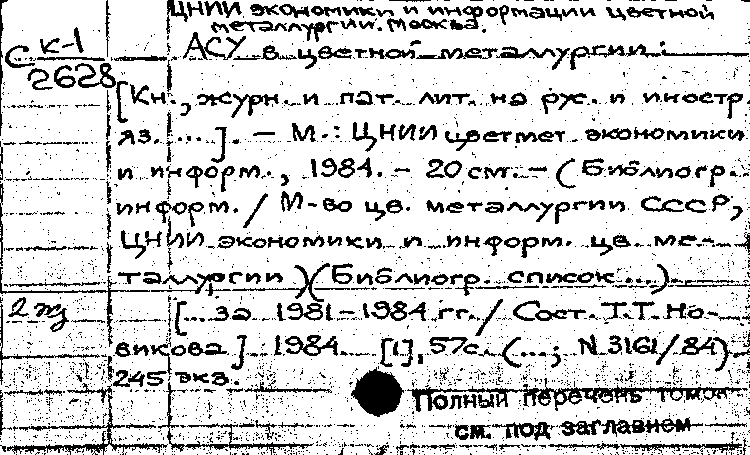 ЦНИИ экономики и информации цветной
металлургии. Москва.
С К-1
2628
АСУ в цветной металлургии:
[Кн., журн. и пат. лит. на рус. и иностр.
яз. ...]. — М.: ЦНИИ цветмет экономики
и информ., 1984. - 20 см. — (Библиогр.
информ. / М-во цв. металлургии СССР,
ЦНИИ экономики и информ. цв. ме-
таллургии) (Библиогр. список ...).
2 экз
[... за 1981-1984 гг. / Сост. Т.Т. Но-
викова] 1984. [1], 57с. (...; N 3161/84)
245 экз.
Полный перечень томов
см. под заглавием